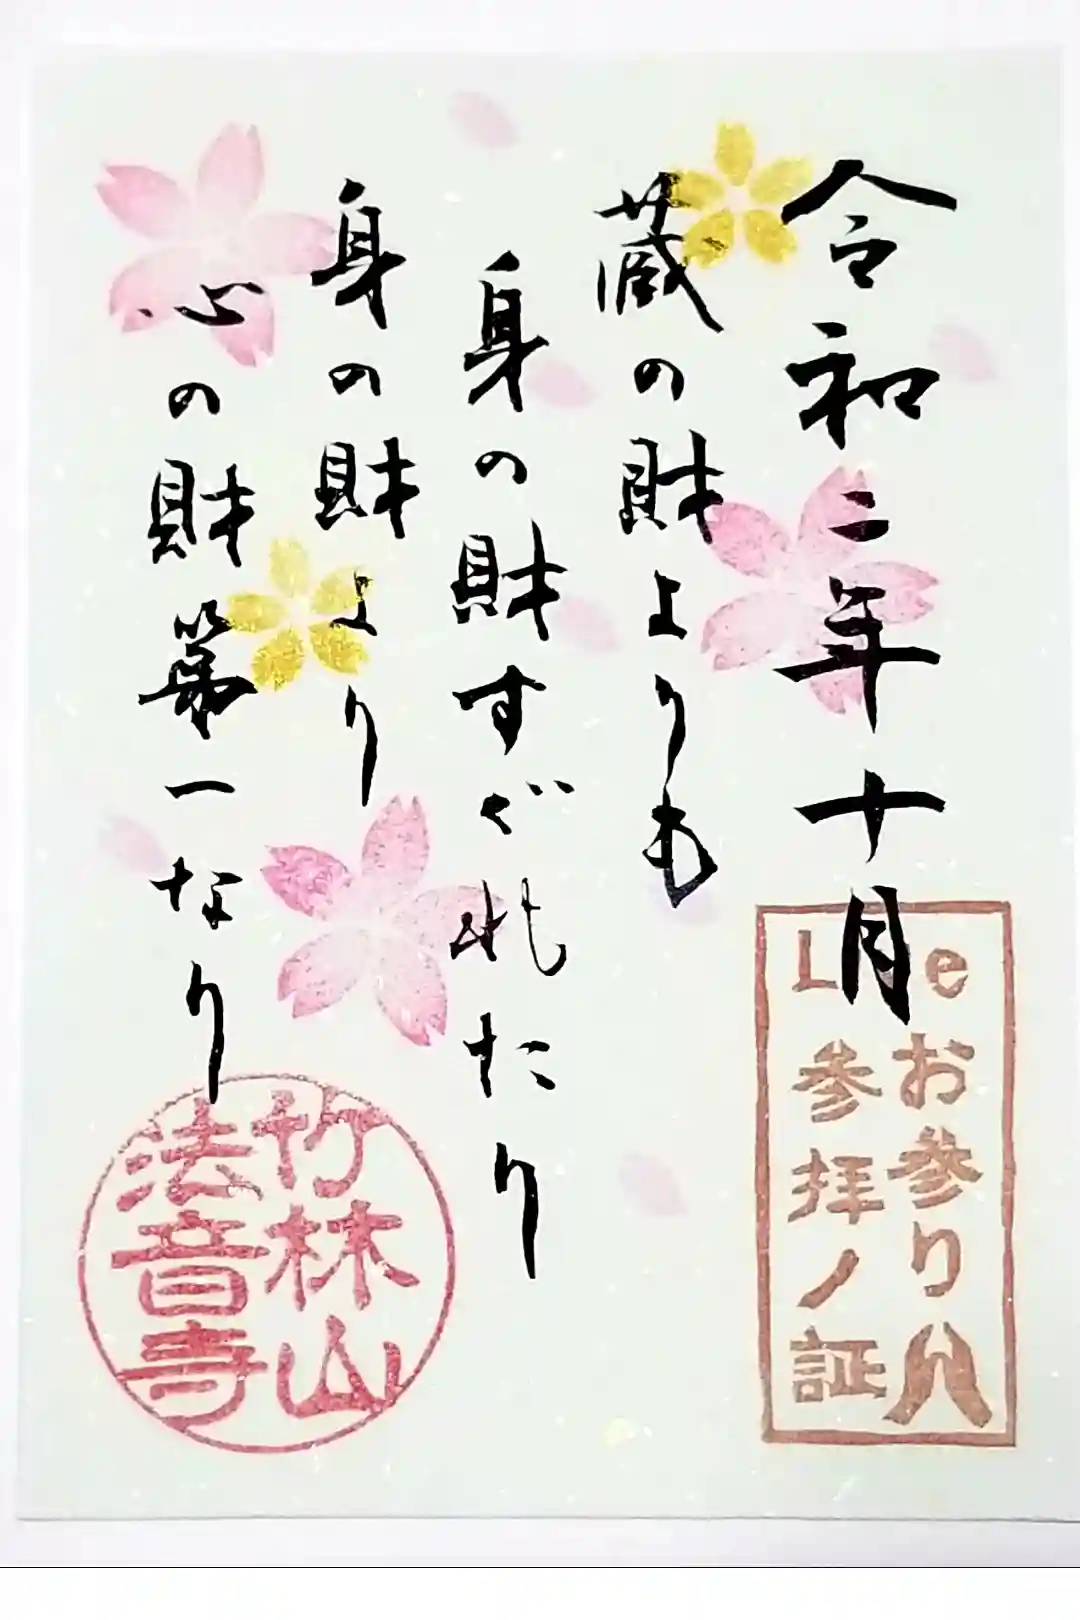 令和三年十月
蔵の財よりも
身の財すぐれたり
身の財より
心の財第一なり
お参り
参拝ノ証
竹林山
法音寺